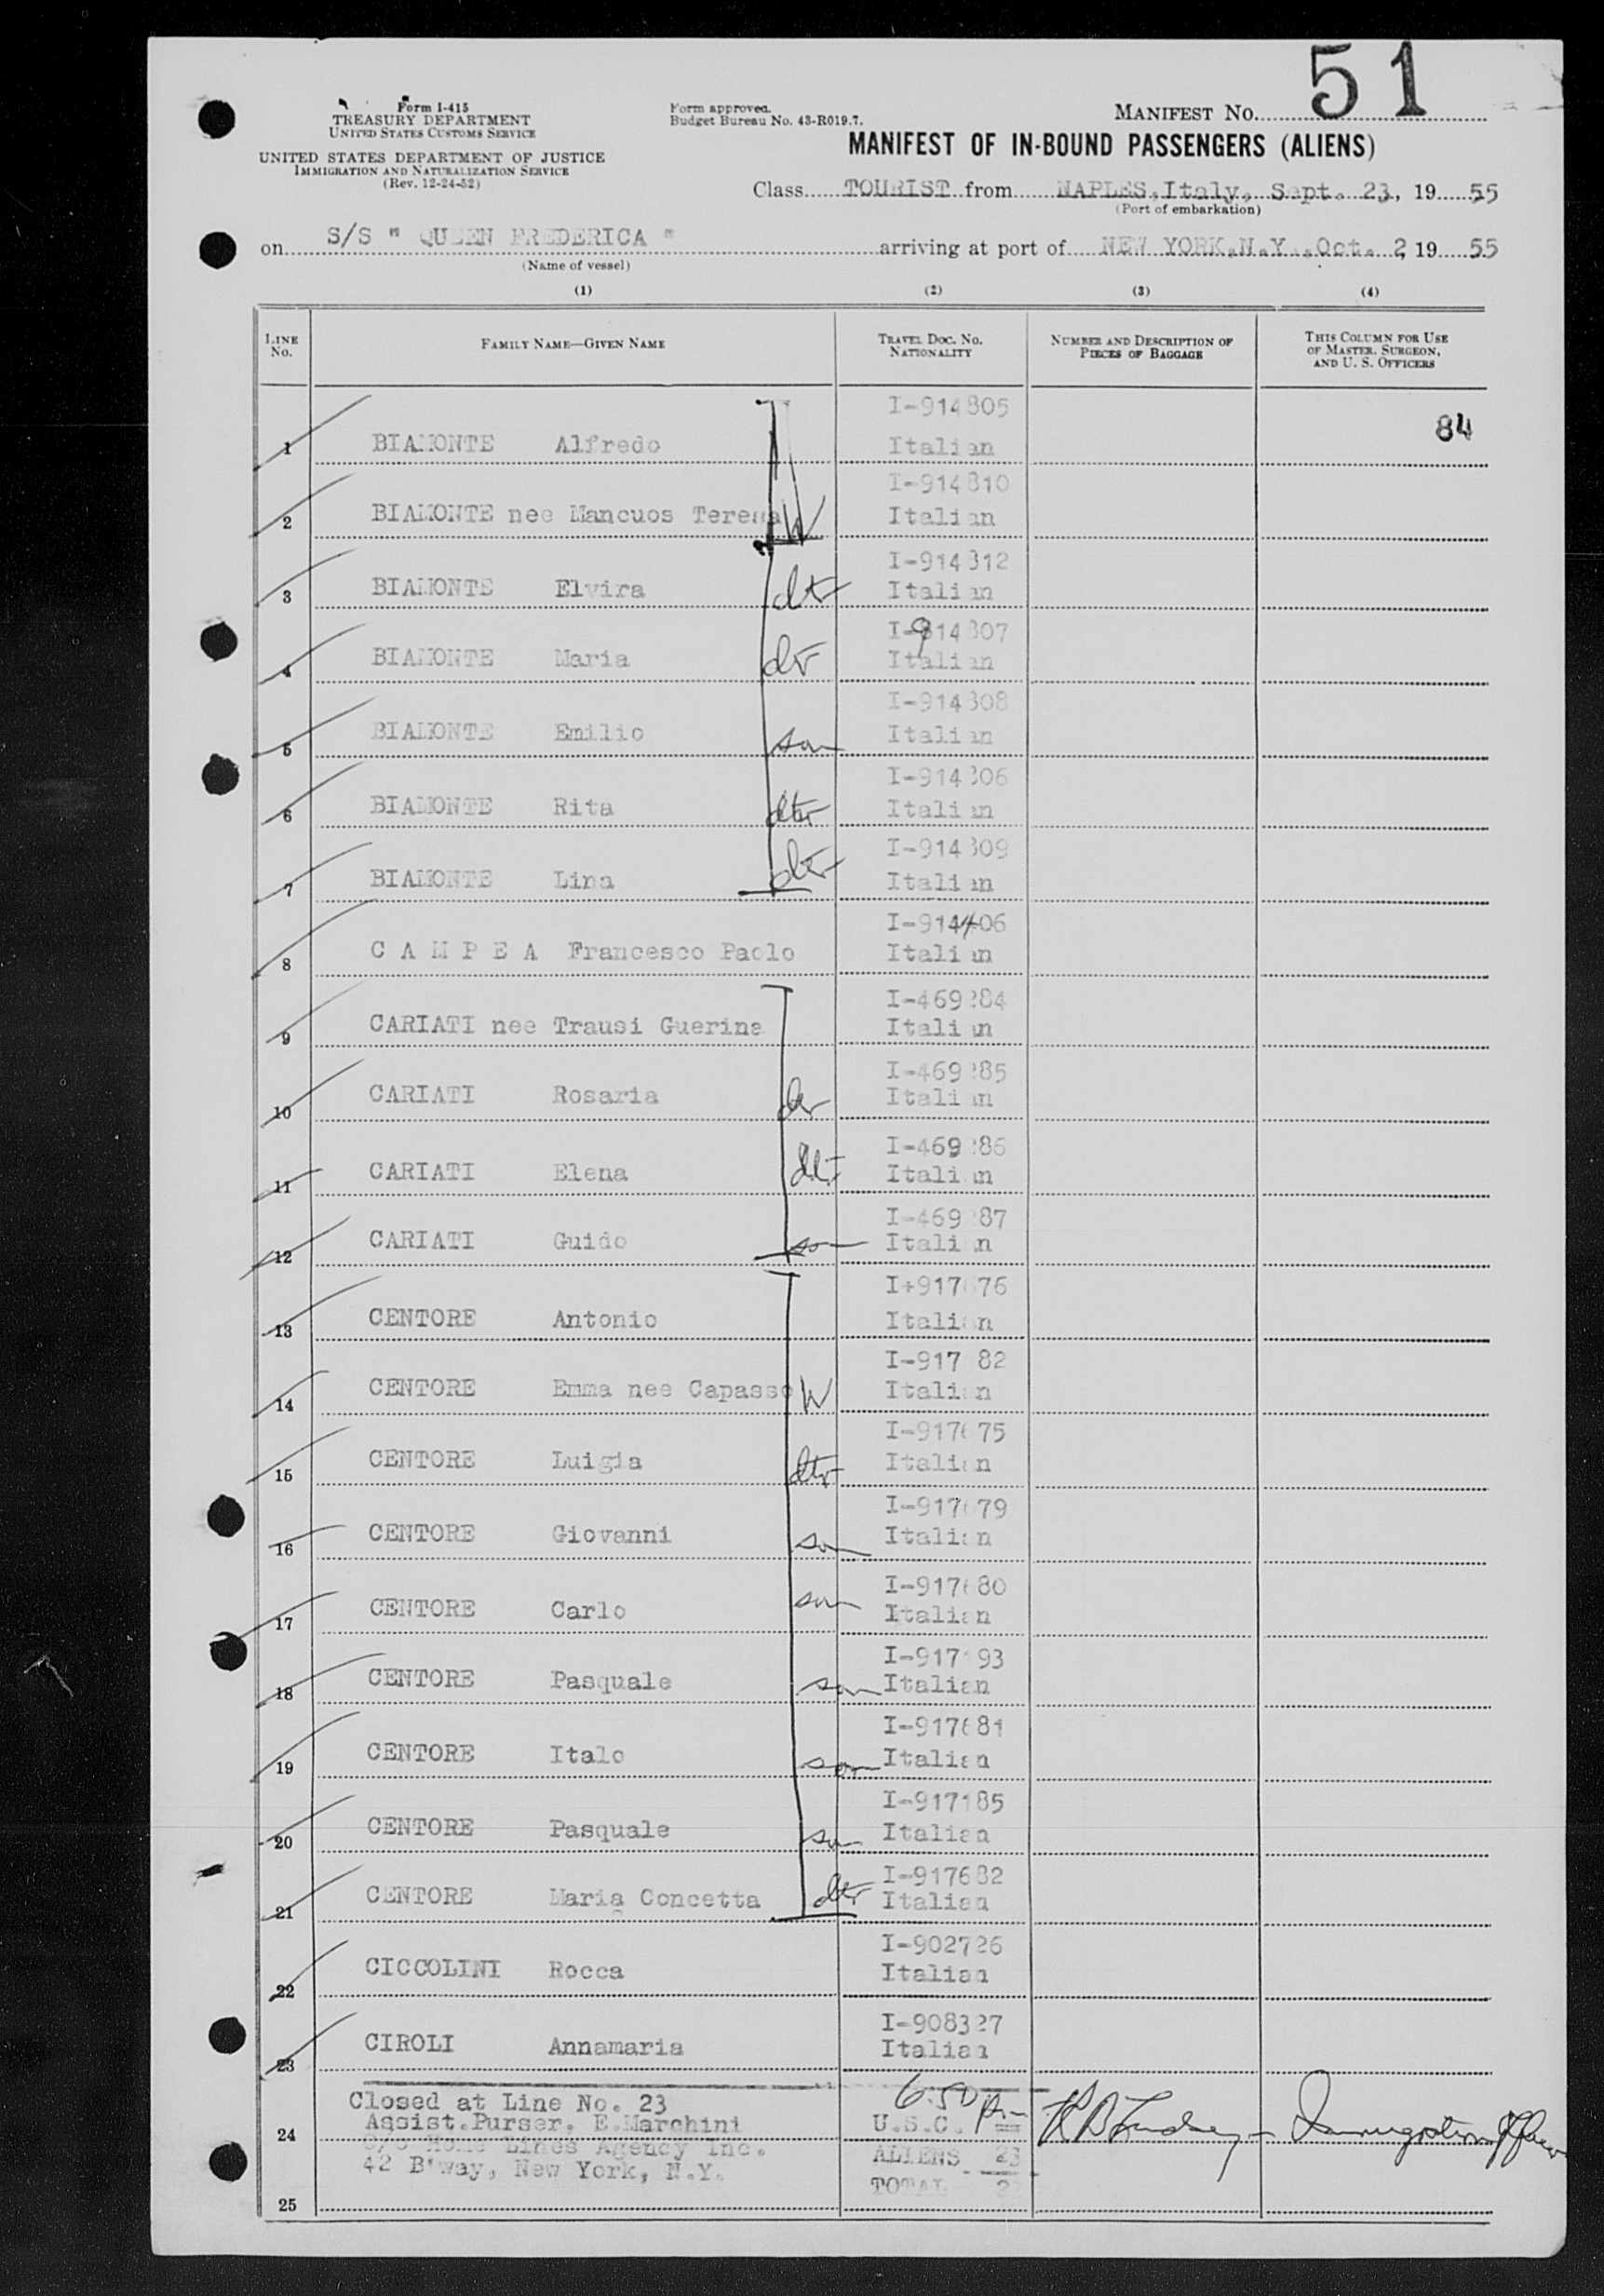 51
Form I-415
TREASURY DEPARTMENT
UNITED STATES CUSTOMS SERVICE
UNITED STATES DEPARTMENT OF JUSTICE
IMMIGRATION AND NATURALIZATION SERVICE
(Rev. 12-24-52)
Form approved.
Budget Bureau No. 43-R019.7.
MANIFEST NO.
MANIFEST OF IN-BOUND PASSENGERS (ALIENS)
Class TOURIST from NAPLES, Italy, Sept. 23, 19 55
(Port of embarkation)
on S/S " QUEEN FREDERICA " arriving at port of NEW YORK,N.Y.,Oct. 2, 19 55
(Name of vessel)
(1) (2) (3) (4)
LINE No. FAMILY NAME—GIVEN NAME TRAVEL DOC. NO. NATIONALITY NUMBER AND DESCRIPTION OF PIECES OF BAGGAGE THIS COLUMN FOR USE OF MASTER, SURGEON, AND U. S. OFFICERS
I-914805
84
1 BIAMONTE Alfredo Italian
I-914810
2 BIAMONTE nee Mancuos Teresa W Italian
I-914812
3 BIAMONTE Elvira dtr Italian
I-914807
4 BIAMONTE Maria dtr Italian
I-914808
5 BIAMONTE Emilio son Italian
I-914806
6 BIAMONTE Rita dtr Italian
I-914809
7 BIAMONTE Lina dtr Italian
I-914406
8 C A M P E A Francesco Paolo Italian
9 CARIATI nee Trausi Guerina Italian
10 CARIATI Rosaria dtr Italian
11 CARIATI Elena dtr Italian
12 CARIATI Guido son Italian
13 CENTORE Antonio Italian
14 CENTORE Emma nee Capasso W Italian
15 CENTORE Luigia dtr Italian
16 CENTORE Giovanni son Italian
I-917680
17 CENTORE Carlo son Italian
18 CENTORE Pasquale son Italian
I-917681
19 CENTORE Italo son Italian
I-917185
20 CENTORE Pasquale son Italian
I-917682
21 CENTORE Maria Concetta dtr Italian
I-902726
22 CICCOLINI Rocca Italian
I-908327
23 CIROLI Annamaria Italian
Closed at Line No. 23 6:50 pm
24 Assist.Purser, E.Marchini U.S.C. Immigration Officer
Home Lines Agency Inc. ALIENS 23
42 B'way, New York, N.Y. TOTAL
25